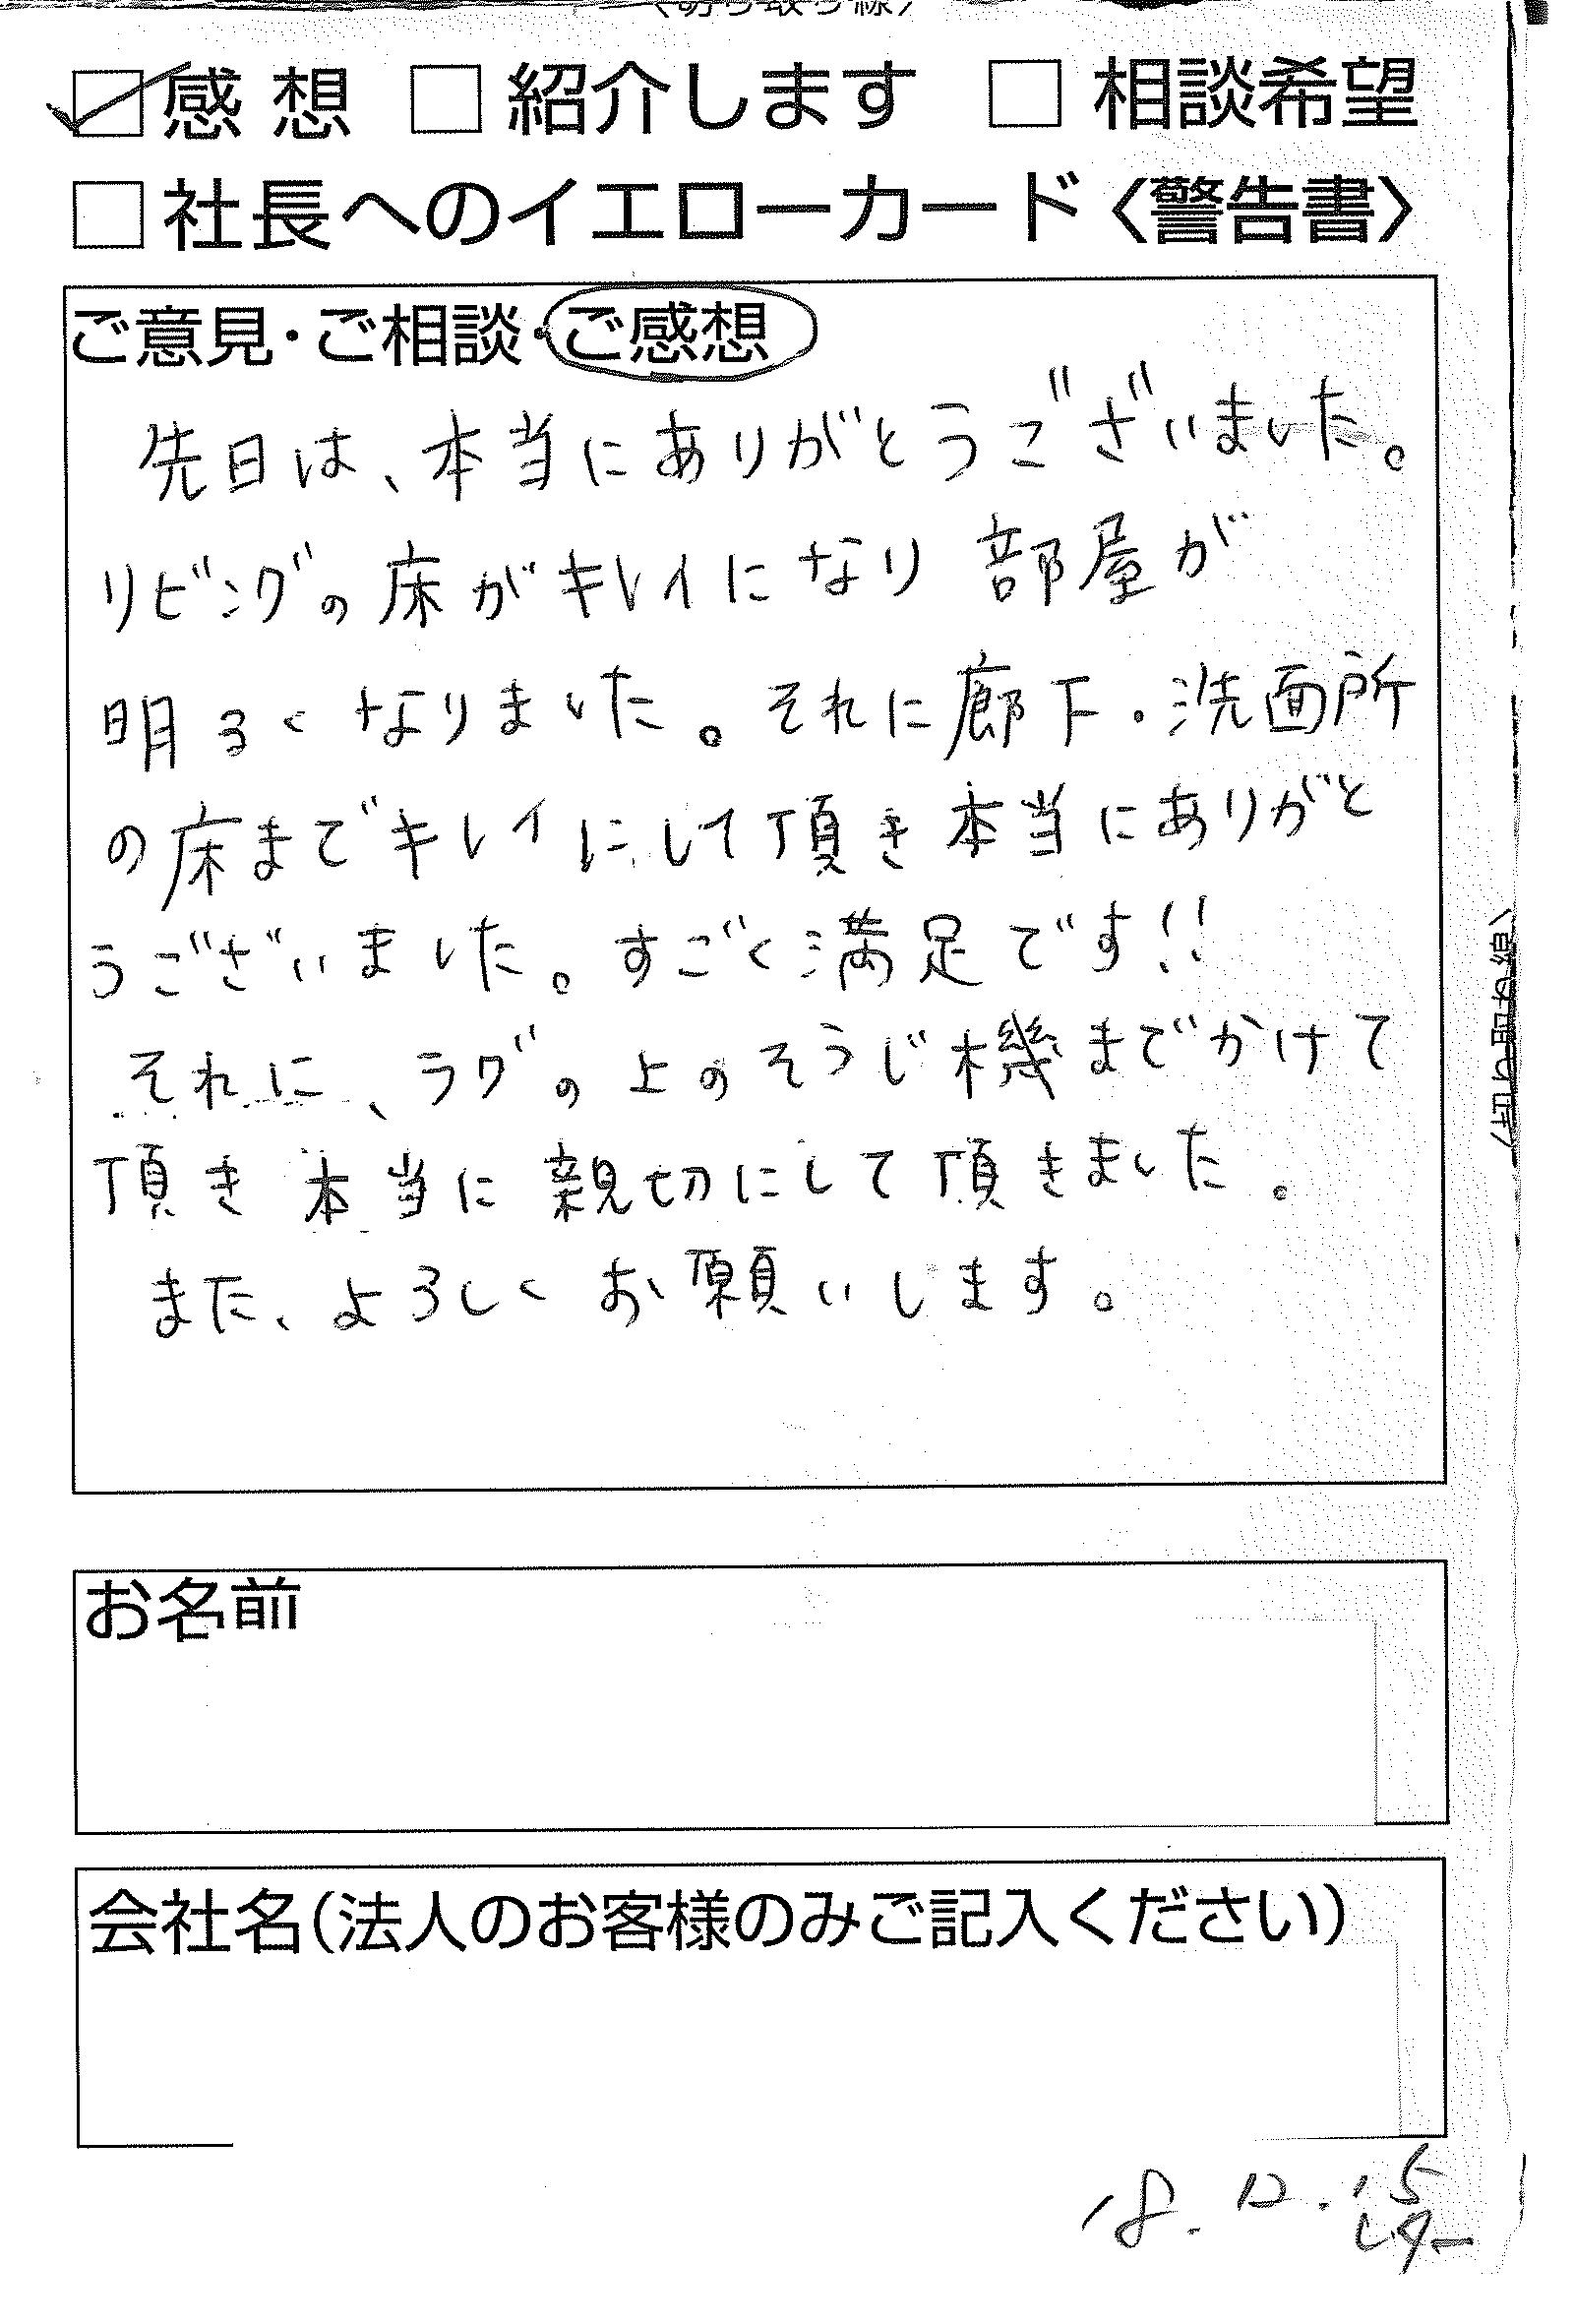 ☑感 想 □紹介します □ 相談希望
□社長へのイエローカード〈警告書〉
ご意見・ご相談・ご感想
先日は、本当にありがとうございました。
リビングの床がキレイになり 部屋が
明るくなりました。それに廊下・洗面所
の床までキレイにして頂き本当にありがと
うございました。すごく満足です!!
それに、ラグの上のそうじ機までかけて
頂き 本当に親切にして頂きました。
また、よろしくお願いします。
お名前
会社名(法人のお客様のみご記入ください)
18.12.15